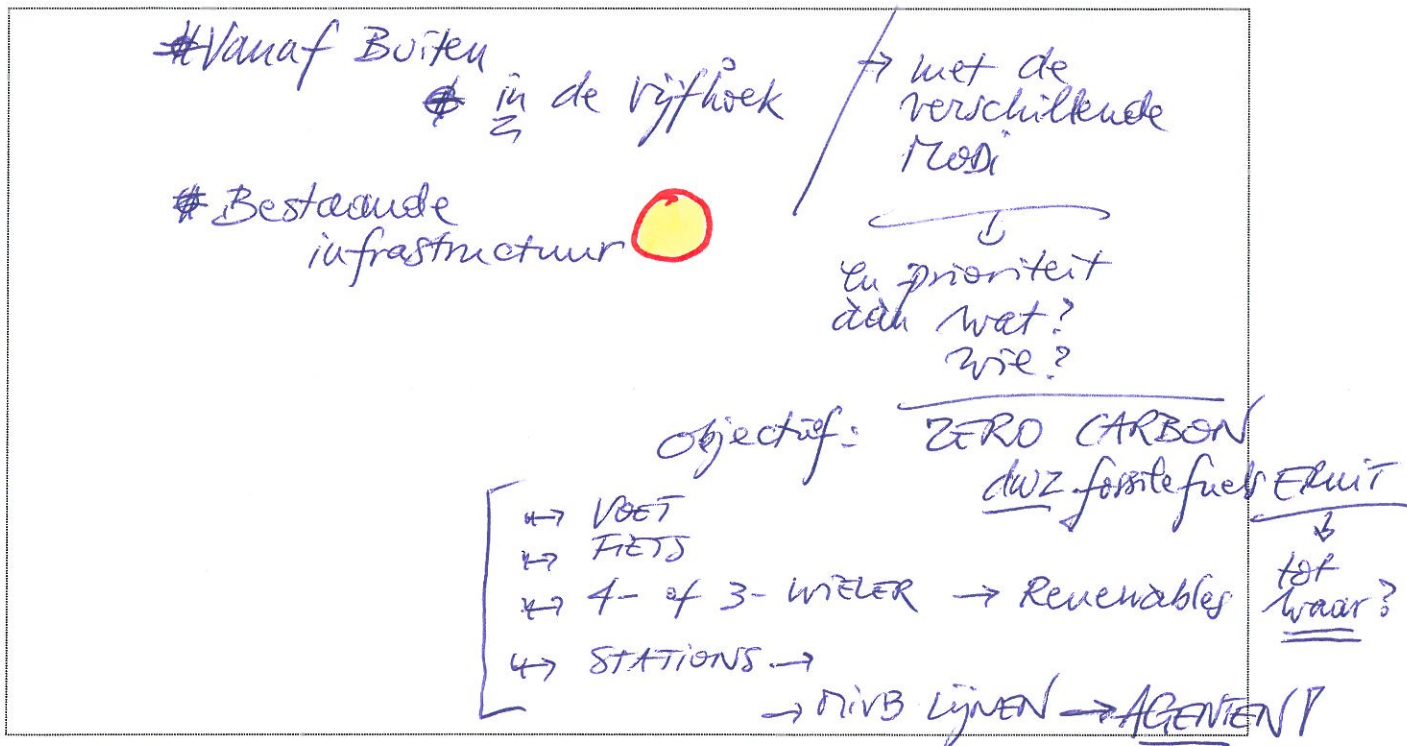 # Vanaf Buiten
# in de vijfhoek
# Bestaande
infrastructuur
→ met de
verschillende
MODi
↓
en prioriteit
aan wat?
wie?
objectief: ZERO CARBON
dwz fossile fuels ERUIT
↓
tot
waar?
↳ VOET
↳ FIETS
↳ 4- of 3- WIELER → Renewables
↳ STATIONS →
→ MIVB LIJNEN → AGENTEN!